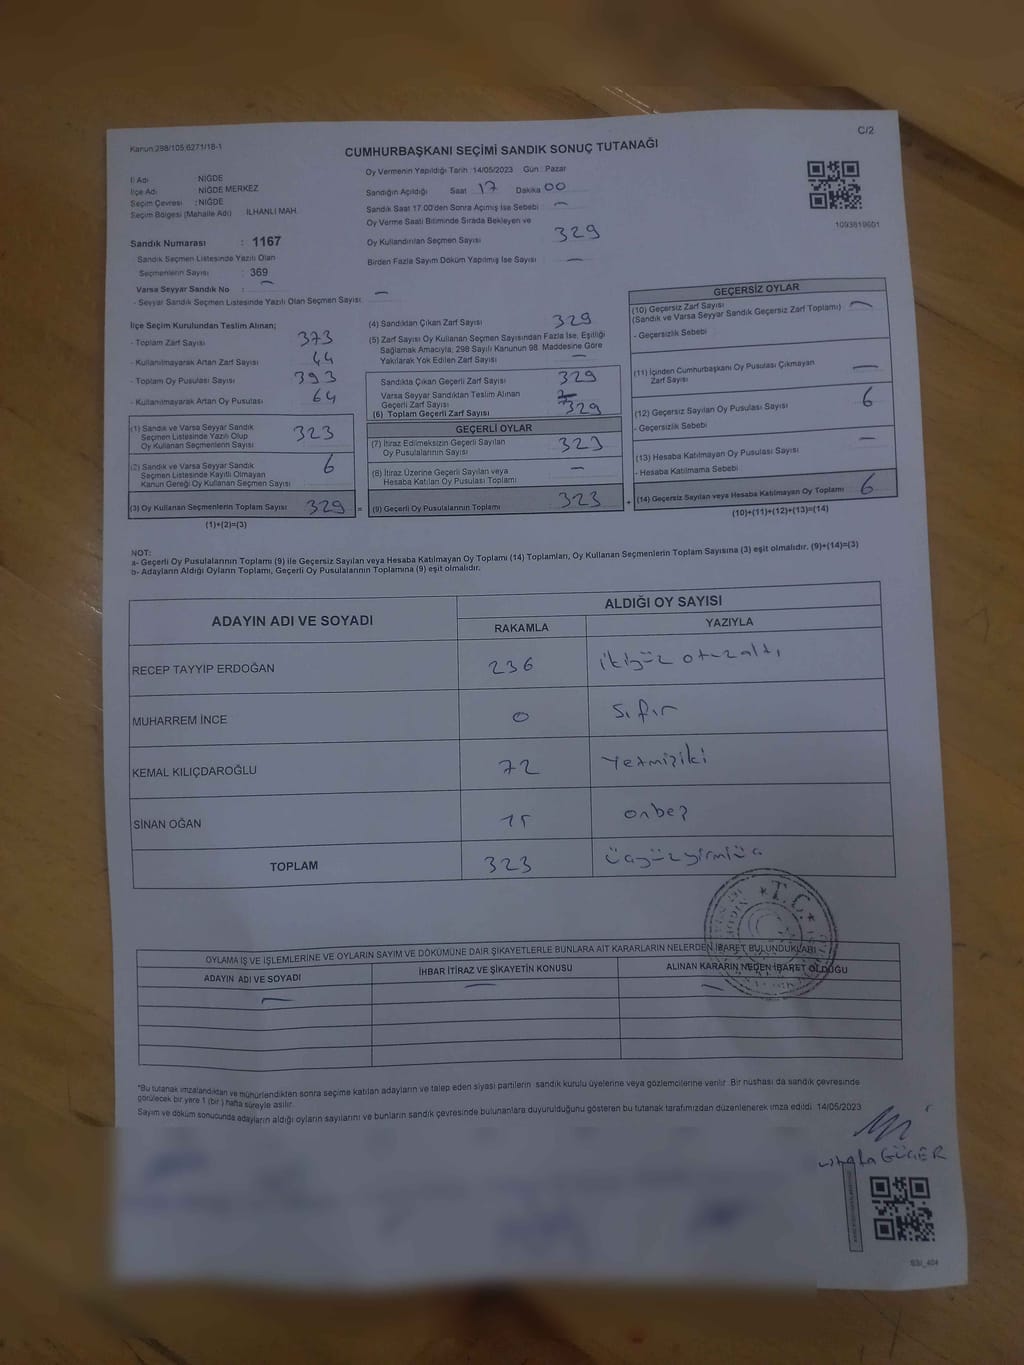 Kanun:298/105,6271/18-1
C/2
CUMHURBAŞKANI SEÇİMİ SANDIK SONUÇ TUTANAĞI
İl Adı NİĞDE
İlçe Adı NİĞDE MERKEZ
Seçim Çevresi : NİĞDE
Seçim Bölgesi (Mahalle Adı) İLHANLI MAH.
Sandık Numarası : 1167
Sandık Seçmen Listesinde Yazılı Olan
Seçmenlerin Sayısı : 369
Varsa Seyyar Sandık No : —
- Seyyar Sandık Seçmen Listesinde Yazılı Olan Seçmen Sayısı: —
Oy Vermenin Yapıldığı Tarih 14/05/2023 Gün : Pazar
Sandığın Açıldığı Saat 17 Dakika 00
Sandık Saat 17.00'den Sonra Açılmış İse Sebebi —
Oy Verme Saati Bitiminde Sırada Bekleyen ve
Oy Kullandırılan Seçmen Sayısı 329
Birden Fazla Sayım Döküm Yapılmış İse Sayısı —
1093819601
İlçe Seçim Kurulundan Teslim Alınan;
- Toplam Zarf Sayısı 373
- Kullanılmayarak Artan Zarf Sayısı 44
- Toplam Oy Pusulası Sayısı 393
- Kullanılmayarak Artan Oy Pusulası 64
(1) Sandık ve Varsa Seyyar Sandık
Seçmen Listesinde Yazılı Olup
Oy Kullanan Seçmenlerin Sayısı 323
(2) Sandık ve Varsa Seyyar Sandık
Seçmen Listesinde Kayıtlı Olmayan
Kanun Gereği Oy Kullanan Seçmen Sayısı 6
(3) Oy Kullanan Seçmenlerin Toplam Sayısı 329 =
(1)+(2)=(3)
(4) Sandıktan Çıkan Zarf Sayısı 329
(5) Zarf Sayısı Oy Kullanan Seçmen Sayısından Fazla İse, Eşitliği
Sağlamak Amacıyla; 298 Sayılı Kanunun 98. Maddesine Göre
Yakılarak Yok Edilen Zarf Sayısı —
Sandıkta Çıkan Geçerli Zarf Sayısı 329
Varsa Seyyar Sandıktan Teslim Alınan
Geçerli Zarf Sayısı
(6) Toplam Geçerli Zarf Sayısı 329
GEÇERLİ OYLAR
(7) İtiraz Edilmeksizin Geçerli Sayılan
Oy Pusulalarının Sayısı 323
(8) İtiraz Üzerine Geçerli Sayılan veya
Hesaba Katılan Oy Pusulası Toplamı —
(9) Geçerli Oy Pusulalarının Toplamı 323 +
GEÇERSİZ OYLAR
(10) Geçersiz Zarf Sayısı
(Sandık ve Varsa Seyyar Sandık Geçersiz Zarf Toplamı) —
- Geçersizlik Sebebi
(11) İçinden Cumhurbaşkanı Oy Pusulası Çıkmayan
Zarf Sayısı —
(12) Geçersiz Sayılan Oy Pusulası Sayısı 6
- Geçersizlik Sebebi
(13) Hesaba Katılmayan Oy Pusulası Sayısı —
- Hesaba Katılmama Sebebi
(14) Geçersiz Sayılan veya Hesaba Katılmayan Oy Toplamı 6
(10)+(11)+(12)+(13)=(14)
NOT:
a- Geçerli Oy Pusulalarının Toplamı (9) ile Geçersiz Sayılan veya Hesaba Katılmayan Oy Toplamı (14) Toplamları, Oy Kullanan Seçmenlerin Toplam Sayısına (3) eşit olmalıdır. (9)+(14)=(3)
b- Adayların Aldığı Oyların Toplamı, Geçerli Oy Pusulalarının Toplamına (9) eşit olmalıdır.
ADAYIN ADI VE SOYADI ALDIĞI OY SAYISI
RAKAMLA YAZIYLA
RECEP TAYYİP ERDOĞAN 236 ikiyüz otuzaltı
MUHARREM İNCE 0 sıfır
KEMAL KILIÇDAROĞLU 72 Yetmişiki
SİNAN OĞAN 15 onbeş
TOPLAM 323 üçyüzyirmiüç
T.C
OYLAMA İŞ VE İŞLEMLERİNE VE OYLARIN SAYIM VE DÖKÜMÜNE DAİR ŞİKAYETLERLE BUNLARA AİT KARARLARIN NELERDEN İBARET BULUNDUKLARI
ADAYIN ADI VE SOYADI İHBAR İTİRAZ VE ŞİKAYETİN KONUSU ALINAN KARARIN NEDEN İBARET OLDUĞU
— — —
*Bu tutanak imzalandıktan ve mühürlendikten sonra seçime katılan adayların ve talep eden siyasi partilerin sandık kurulu üyelerine veya gözlemcilerine verilir. Bir nüshası da sandık çevresinde
görülecek bir yere 1 (bir) hafta süreyle asılır.
Sayım ve döküm sonucunda adayların aldığı oyların sayılarını ve bunların sandık çevresinde bulunanlara duyurulduğunu gösteren bu tutanak tarafımızdan düzenlenerek imza edildi. 14/05/2023